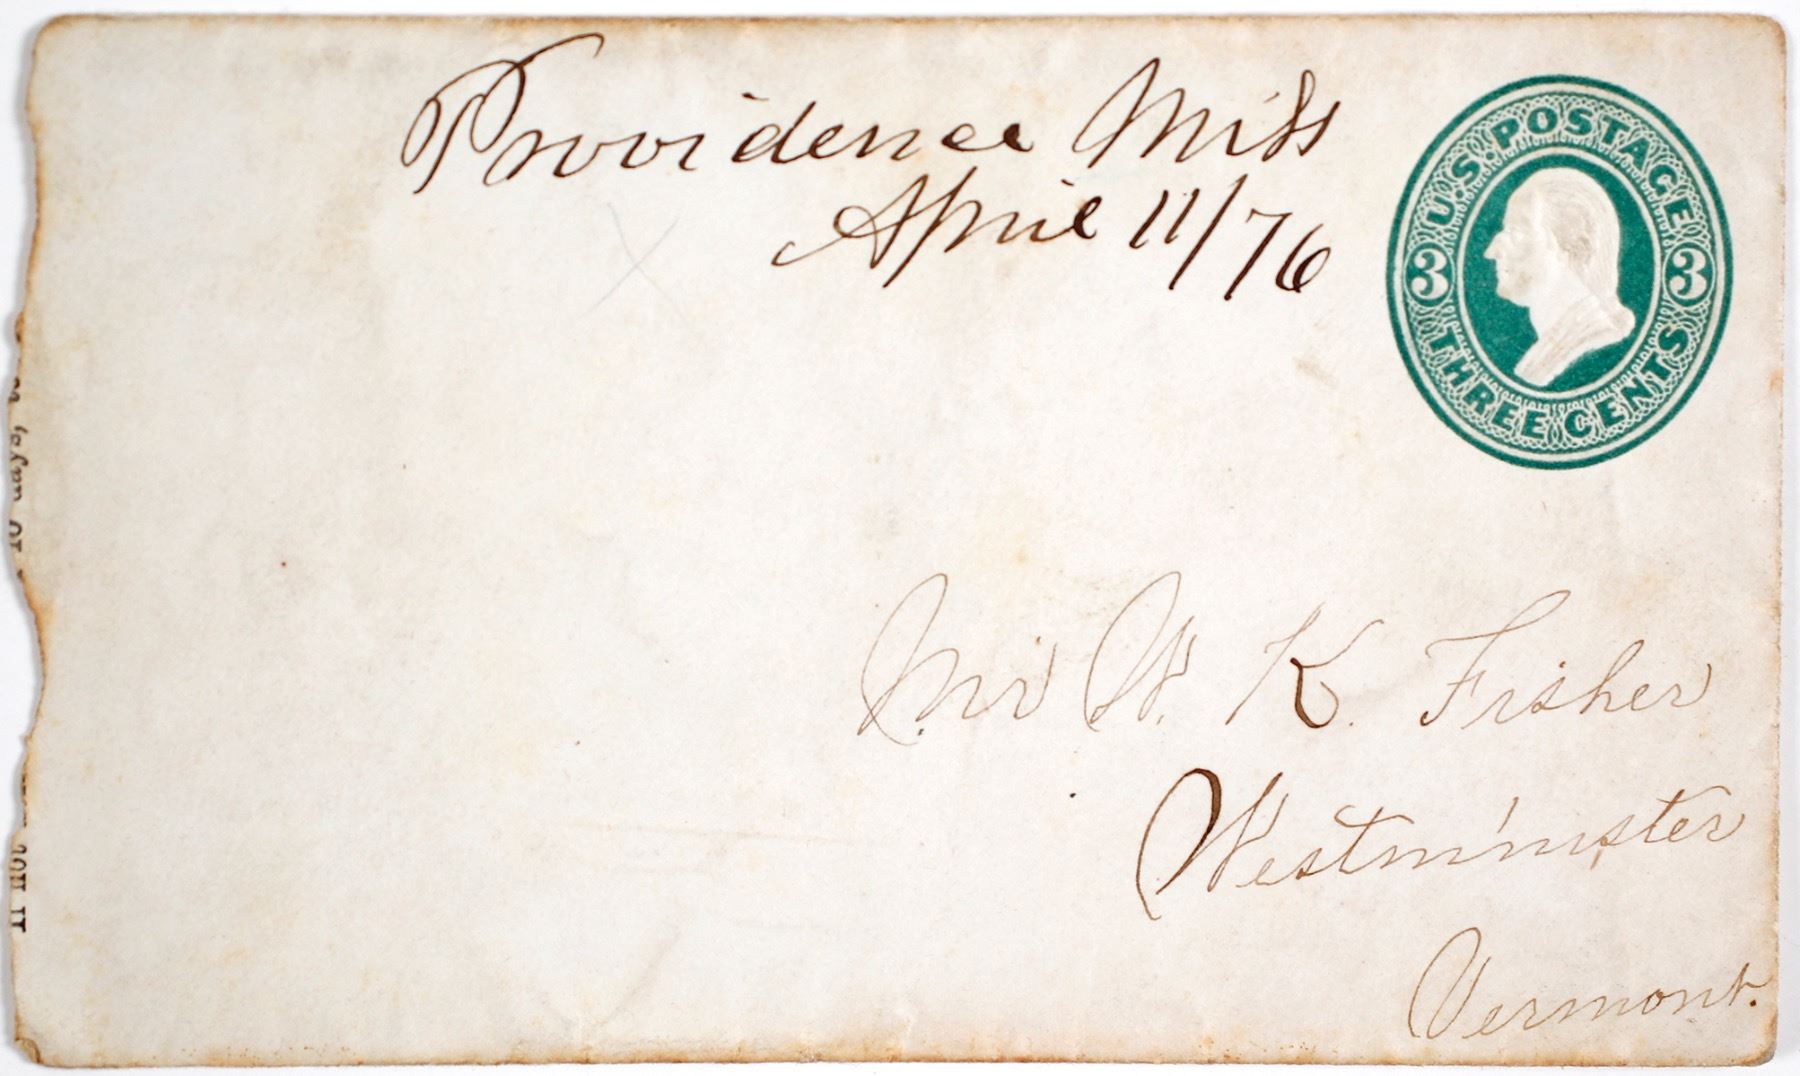 Providence Miss
April 11/76
U.S. POSTAGE
3 3
THREE CENTS
Mr W. K. Fisher
Westminister
Vermont.
If not
10 days, to